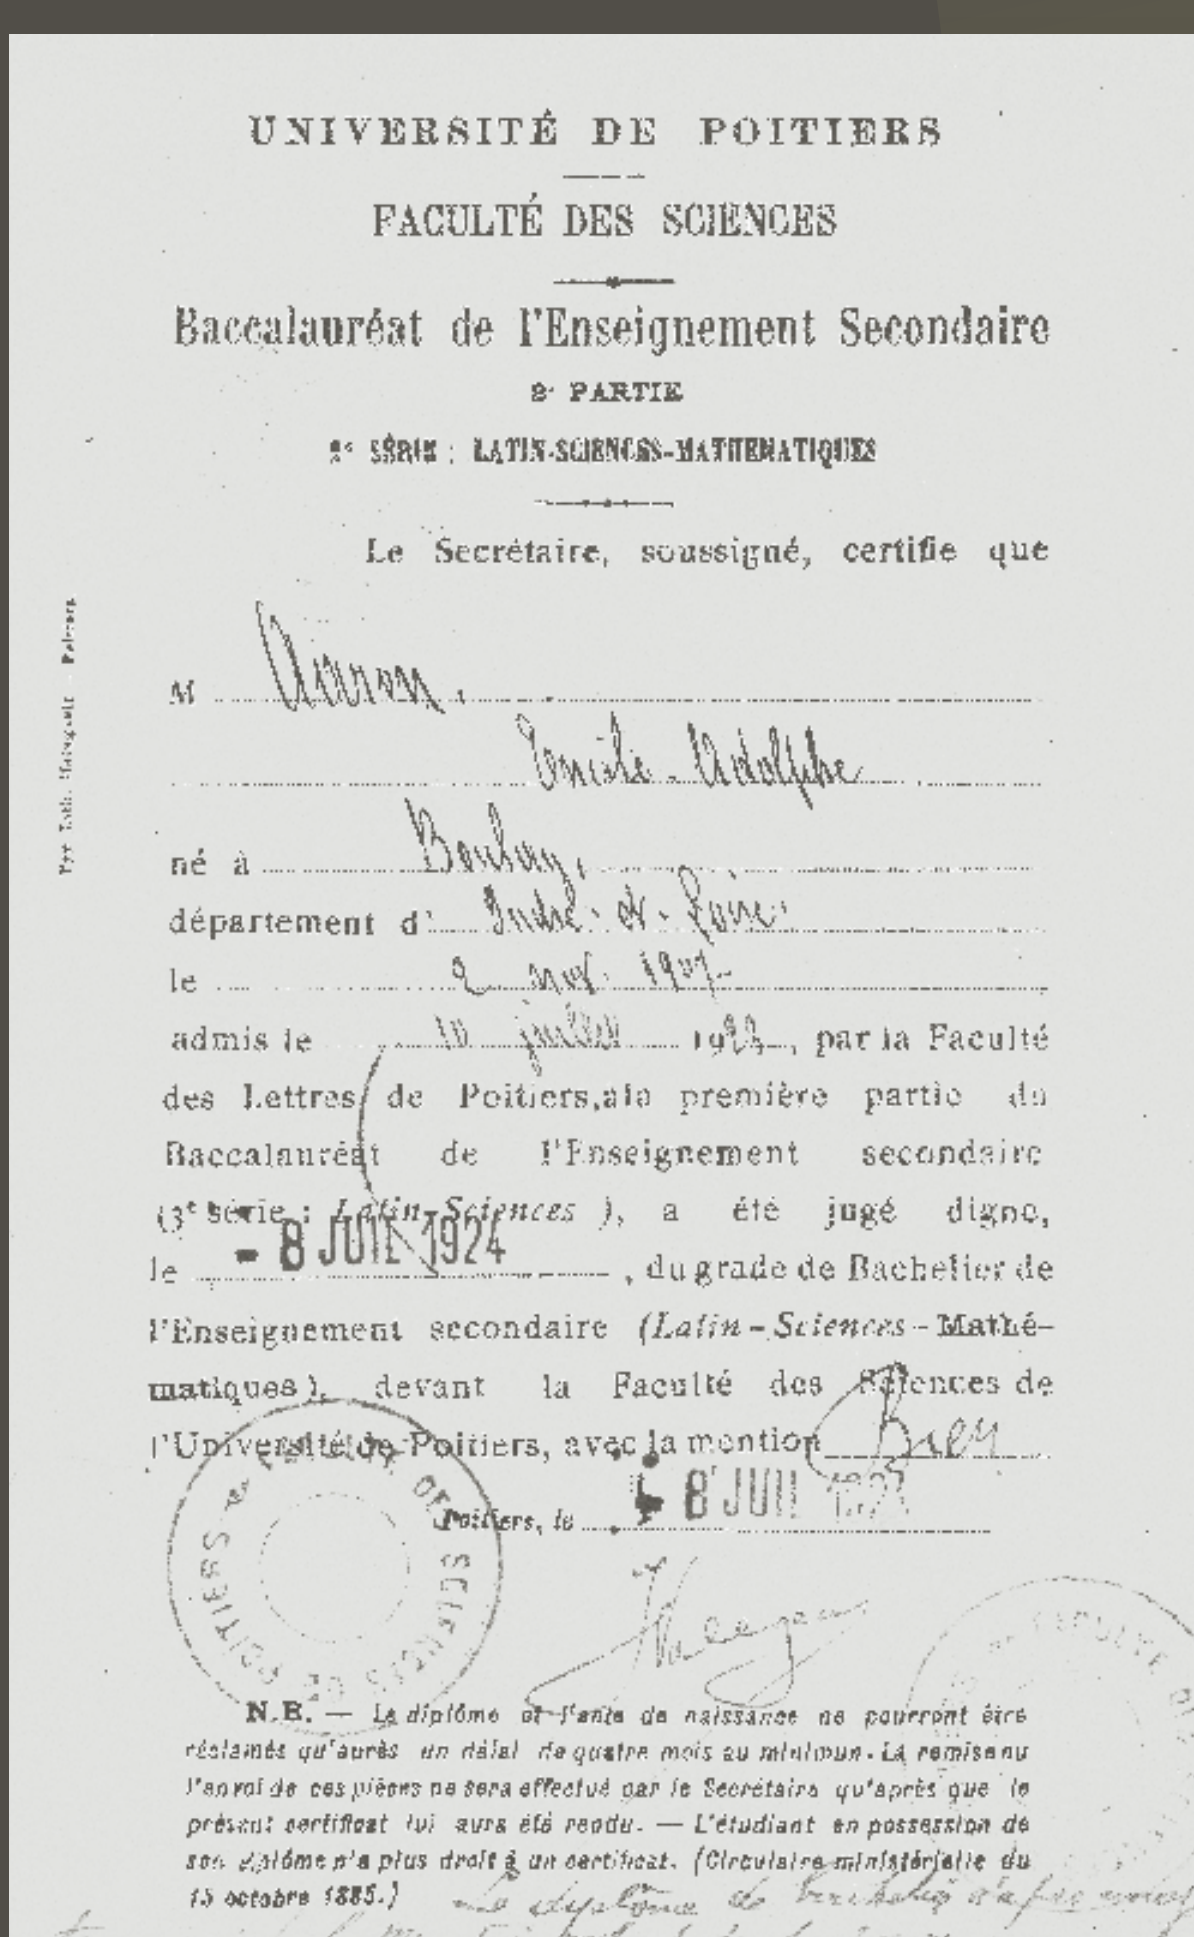 UNIVERSITÉ DE POITIERS
FACULTÉ DES SCIENCES
Baccalauréat de l'Enseignement Secondaire
2e PARTIE
SÉRIE : LATIN-SCIENCES-MATHEMATIQUES
Le Secrétaire, soussigné, certifie que
M
Adolphe
né à
département d' Indre-et-Loire
le 2 nov. 1907
admis le 10 juillet 1923, par la Faculté
des Lettres de Poitiers, à la première partie du
Baccalauréat de l'Enseignement secondaire
(3e série : Latin-Sciences), a été jugé digne,
le - 8 JUIL 1924, du grade de Bachelier de
l'Enseignement secondaire (Latin-Sciences-Mathé-
matiques), devant la Faculté des Sciences de
l'Université de Poitiers, avec la mention Bien
Poitiers, le - 8 JUIL 1924
FACULTÉ DES SCIENCES DE POITIERS
FACULTE
N.B. — Le diplôme et l'acte de naissance ne pourront être
réclamés qu'après un délai de quatre mois au minimun. La remise ou
l'envoi de ces pièces ne sera effectué par le Secrétaire qu'après que le
présent certificat lui aura été rendu. — L'étudiant en possession de
son diplôme n'a plus droit à un certificat. (Circulaire ministérielle du
15 octobre 1885.)
Le diplôme de